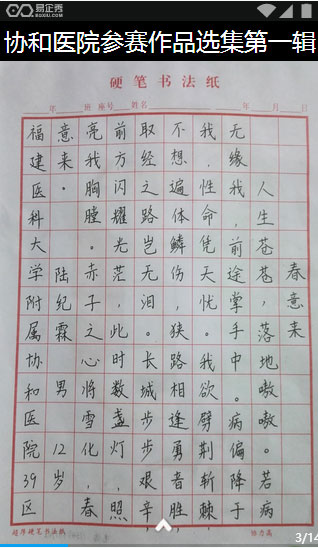 易企秀
EQXIU.COM
协和医院参赛作品选集第一辑
硬笔书法纸
年 班 座号 姓名 年 月 日
春意来
人生苍苍，落地嗷嗷。若病
无缘我，前途掌手中。病偏降于
我，性命凭天忧。我欲劈荆斩棘
不想遍体鳞伤，狭路相逢勇者胜，
取经之路岂无泪。长城步步艰辛，
前方闪耀光茫，此时数盏灯，照
亮我胸膛。赤子之心将雪化，春
意来。
陆纪霖 男 12岁
福建医科大学附属协和医院39区
超厚硬笔书法纸
3/14